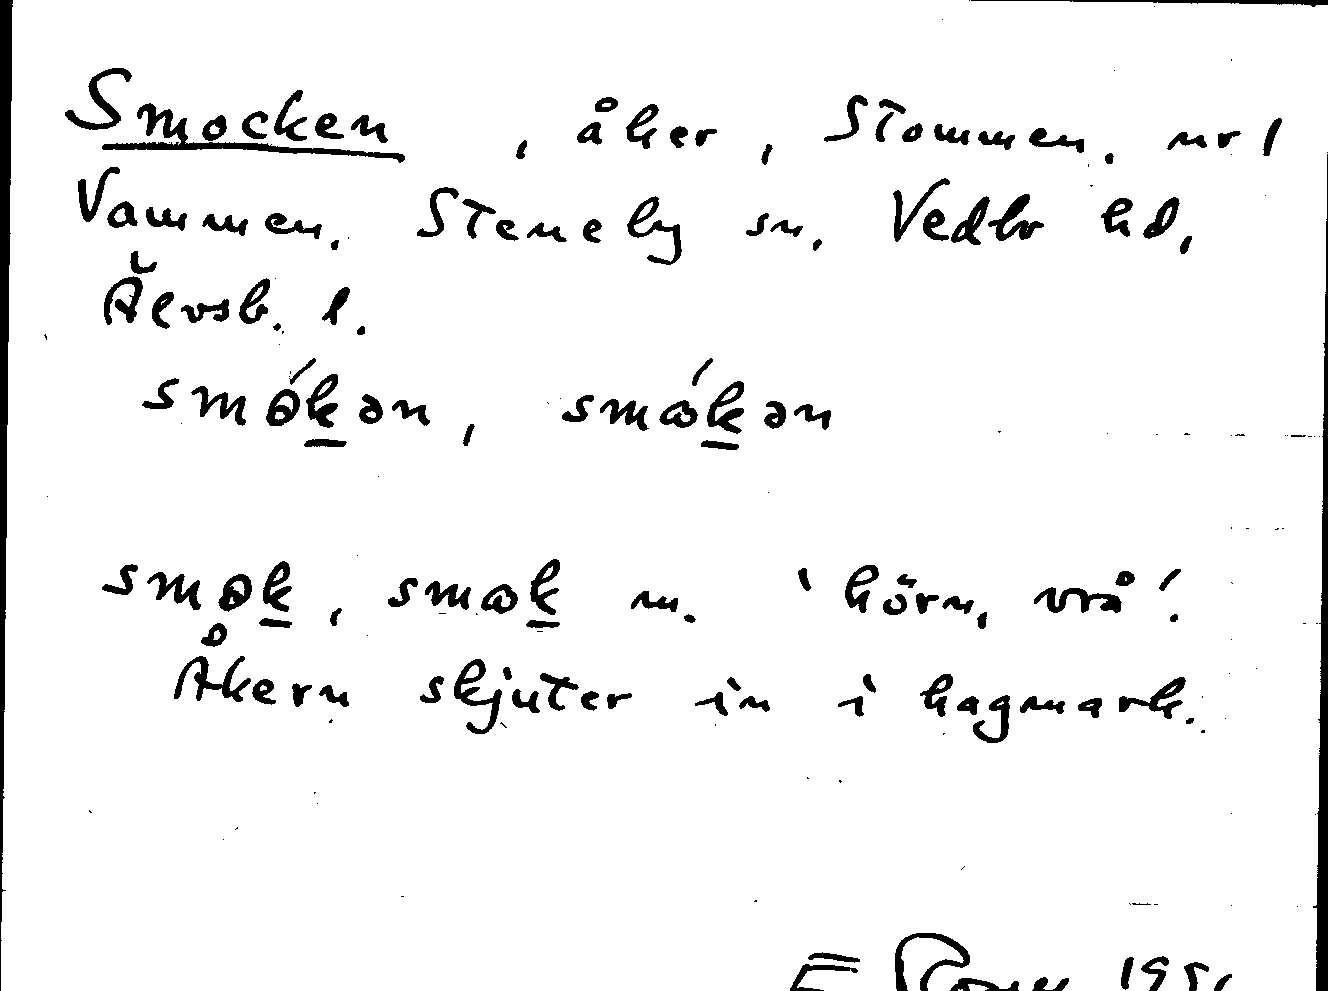 Smocken, åker, Stommen, nr 1
Vammen, Steneby sn, Vedbo hd,
Älvsb. l.
smɵ́k̲ən, smɷ́k̲ən
smɵk̲, smɷk̲ m. 'hörn, vrå'.
Åkern skjuter in i hagmark.
E